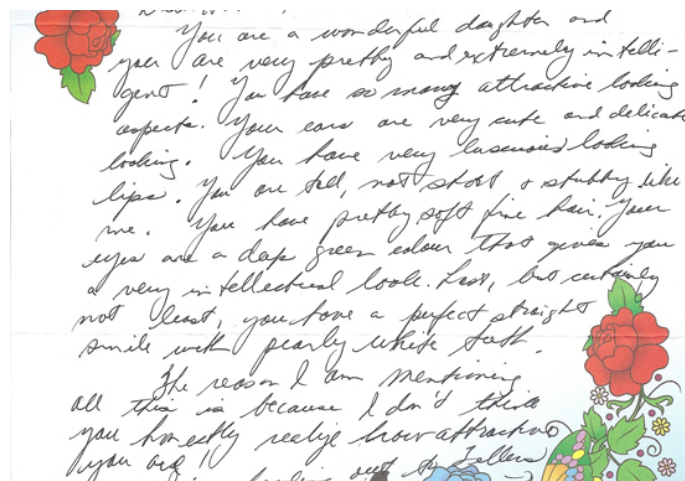 You are a wonderful daughter and
you are very pretty and extremely intelli-
gent! You have so many attractive looking
aspects. Your ears are very cute and delicate
looking. You have very luscious looking
lips. You are tall, not short & stubby like
me. You have pretty soft fine hair. Your
eyes are a deep green colour that gives you
a very intellectual look. Last, but certainly
not least, you have a perfect straight
smile with pearly white teeth.
The reason I am mentioning
all this is because I don't think
you honestly realize how attractive
you are!
out